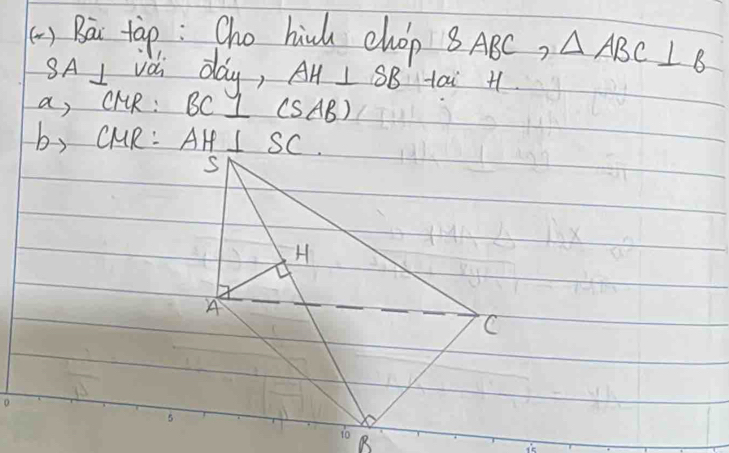 (~) Bài tập : Cho hình chóp SABC, Δ ABC ⊥ B
SA ⊥ với đáy, AH ⊥ SB tại H.
a, CMR: BC ⊥ (SAB)
b, CMR: AH ⊥ SC.
S
H
A
C
B
0 5 10 15